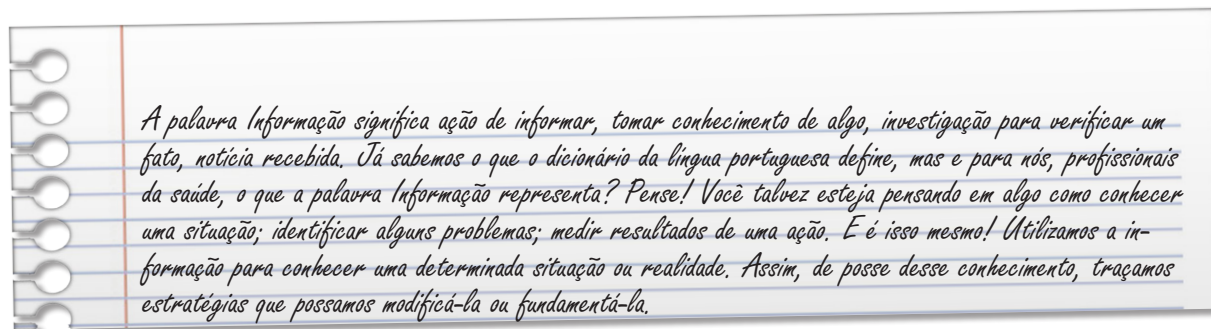 A palavra Informação significa ação de informar, tomar conhecimento de algo, investigação para verificar um
fato, notícia recebida. Já sabemos o que o dicionário da língua portuguesa define, mas e para nós, profissionais
da saúde, o que a palavra Informação representa? Pense! Você talvez esteja pensando em algo como conhecer
uma situação; identificar alguns problemas; medir resultados de uma ação. E é isso mesmo! Utilizamos a in-
formação para conhecer uma determinada situação ou realidade. Assim, de posse desse conhecimento, traçamos
estratégias que possamos modificá-la ou fundamentá-la.